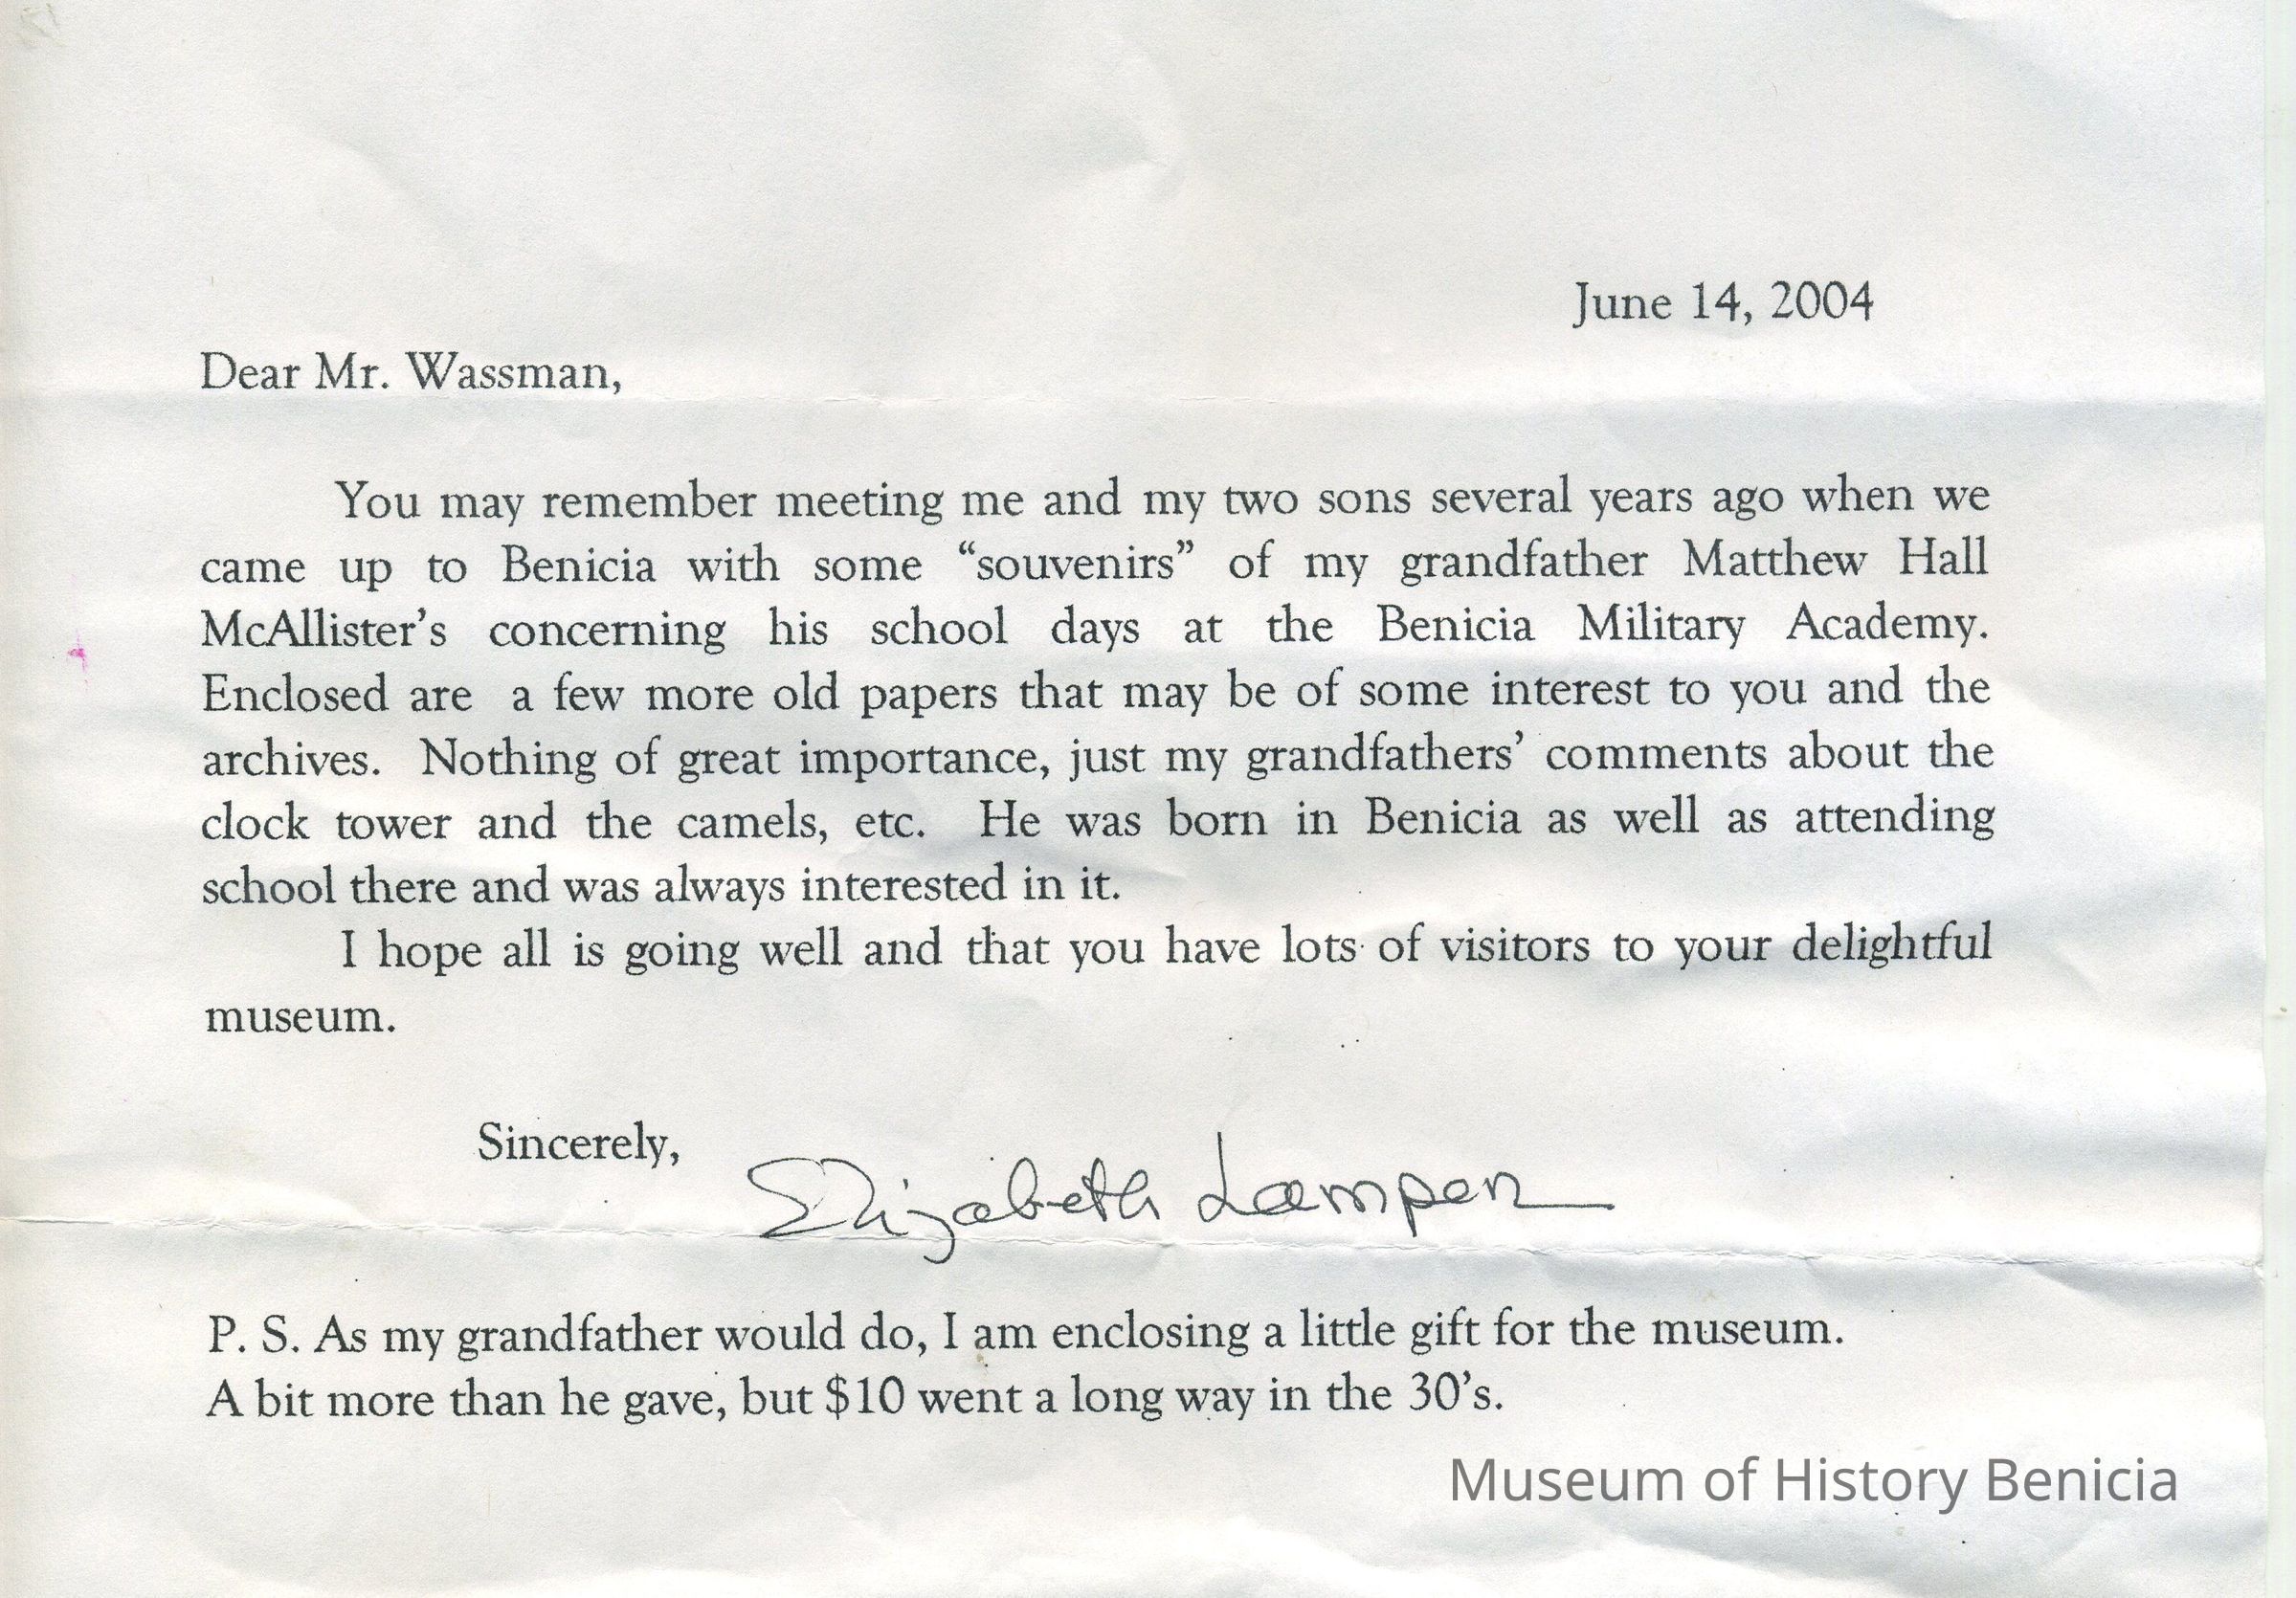 June 14, 2004
Dear Mr. Wassman,
You may remember meeting me and my two sons several years ago when we
came up to Benicia with some “souvenirs” of my grandfather Matthew Hall
McAllister’s concerning his school days at the Benicia Military Academy.
Enclosed are a few more old papers that may be of some interest to you and the
archives. Nothing of great importance, just my grandfathers’ comments about the
clock tower and the camels, etc. He was born in Benicia as well as attending
school there and was always interested in it.
I hope all is going well and that you have lots of visitors to your delightful
museum.
Sincerely,
Elizabeth Lampen
P. S. As my grandfather would do, I am enclosing a little gift for the museum.
A bit more than he gave, but $10 went a long way in the 30’s.
Museum of History Benicia